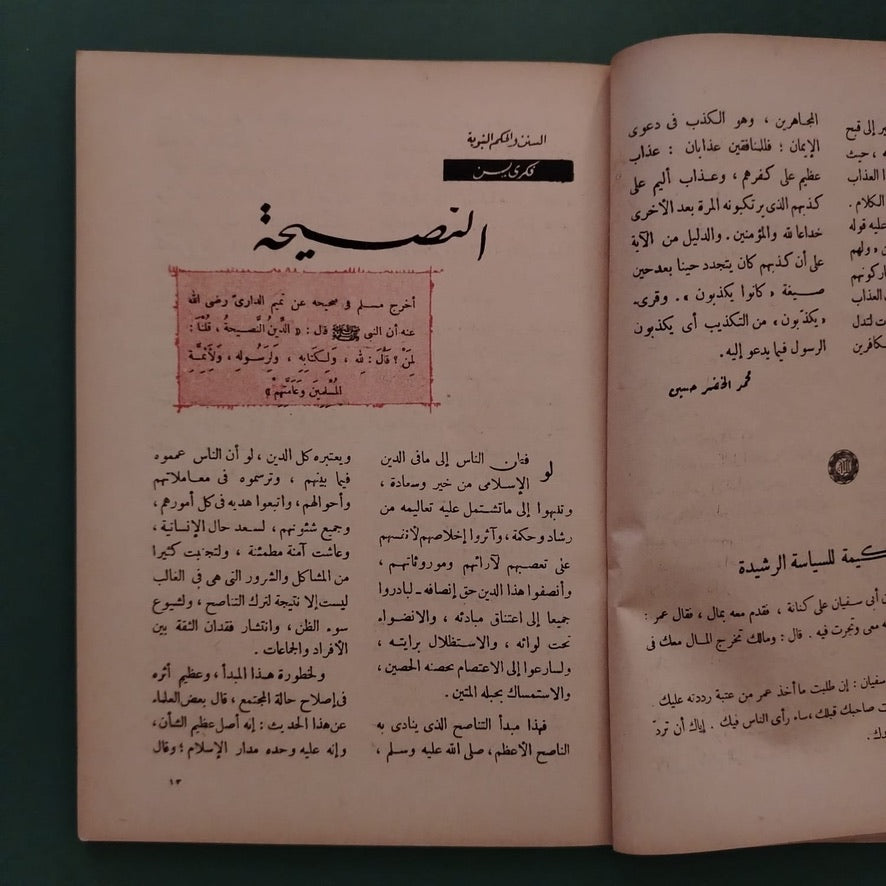 إلى قبح
، حيث
العذاب
الكلام .
عليه قوله
« ولهم
العذاب
لتدل
المجاهرين ، وهو الكذب فى دعوى
الإيمان ؛ فللمنافقين عذابان : عذاب
عظيم على كفرهم ، وعذاب أليم على
كذبهم الذى يرتكبونه المرة بعد الأخرى
خداعا لله والمؤمنين . والدليل من الآية
على أن كذبهم كان يتجدد حينا بعد حين
صيغة « كانوا يكذبون » . وقرى.
« يكذّبون » من التكذيب أى يكذبون
الرسول فيما يدعو إليه .
محمد الخضر حسين
للسياسة الرشيدة
أبى سفيان على كنانة ، فقدم معه بمال ، فقال عمر :
معى وتجرت فيه . قال : ومالك تخرج المال معك فى
سفيان : إن طلبت ما أخذ عمر من عتبة رددته عليك .
صاحبك قبلك ، ساء رأى الناس فيك . إياك أن تردّ
السنن والحكم النبوية
فكرى يسن
النصيحة
أخرج مسلم فى صحيحه عن تميم الدارىّ رضى الله
عنه أن النبي ﷺ قال : « الدِّينُ النَّصِيحَةُ ، قُلْنَا :
لِمَنْ ؟ قَالَ : لِلهِ ، وَلِكِتَابِهِ ، وَلِرَسُولِهِ ، وَلِأَئِمَّةِ
المُسْلِمِينَ وَعَامَّتِهِمْ »
لو فطن الناس إلى مافى الدين
الإسلامى من خير وسعادة ،
وتنبهوا إلى ماتشتمل عليه تعاليمه من
رشاد وحكمة ، وآثروا إخلاصهم لأنفسهم
على تعصبهم لآرائهم وموروثاتهم ،
وأنصفوا هذا الدين حق إنصافه ـ لبادروا
جميعا إلى اعتناق مبادئه ، والانضواء
تحت لوائه ، والاستظلال برايته ،
ولسارعوا إلى الاعتصام بحصنه الحصين ،
والاستمساك بحبله المتين .
فهذا مبدأ التناصح الذى ينادى به
الناصح الأعظم ، صلى الله عليه وسلم ،
ويعتبره كل الدين ، لو أن الناس عمموه
فيما بينهم ، وترسموه فى معاملاتهم
وأحوالهم ، واتبعوا هديه فى كل أمورهم ،
وجميع شئونهم ، لسعد حال الإنسانية ،
وعاشت آمنة مطمئنة ، ولتجنبت كثيرا
من المشاكل والشرور التى هى فى الغالب
ليست إلا نتيجة لترك التناصح ، ولشيوع
سوء الظن ، وانتشار فقدان الثقة بين
الأفراد والجماعات .
ولخطورة هذا المبدأ ، وعظيم أثره
فى إصلاح حالة المجتمع ، قال بعض العلماء
عن هذا الحديث : إنه أصل عظيم الشأن ،
وإنه عليه وحده مدار الإسلام ؛ وقال
١٣